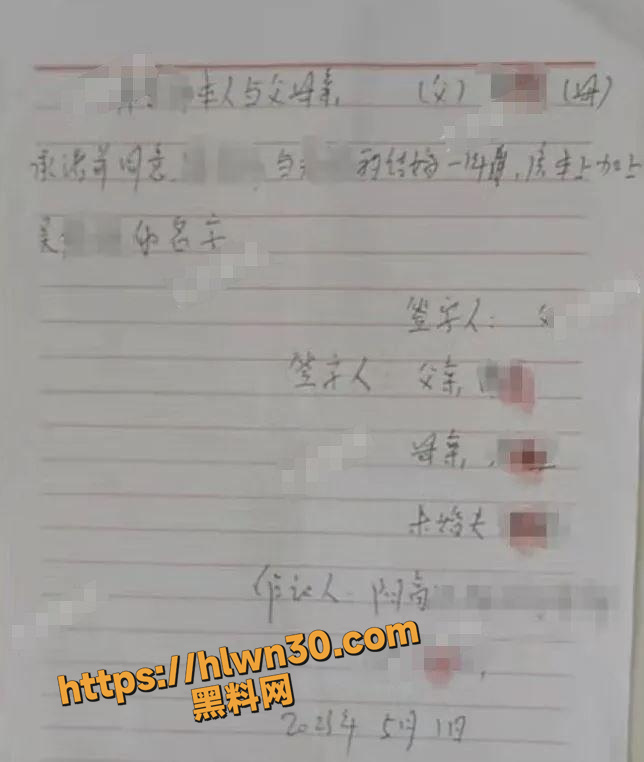 本人与父母亲 (父) (母)
承诺并同意 与 的结婚一年, 房本上加上
吴 的名字
签字人: 父
签字人 父亲
母亲
未婚夫
作证人
https://hlwn30.com
黑料网
2025年 5月 1日